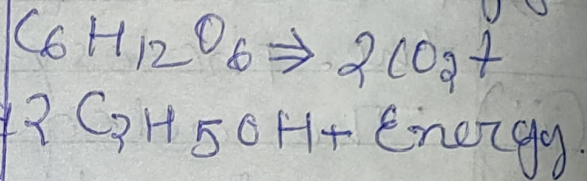 C₆H₁₂O₆ ⇒ 2CO₂ +
2 C₂H5OH + Energy.